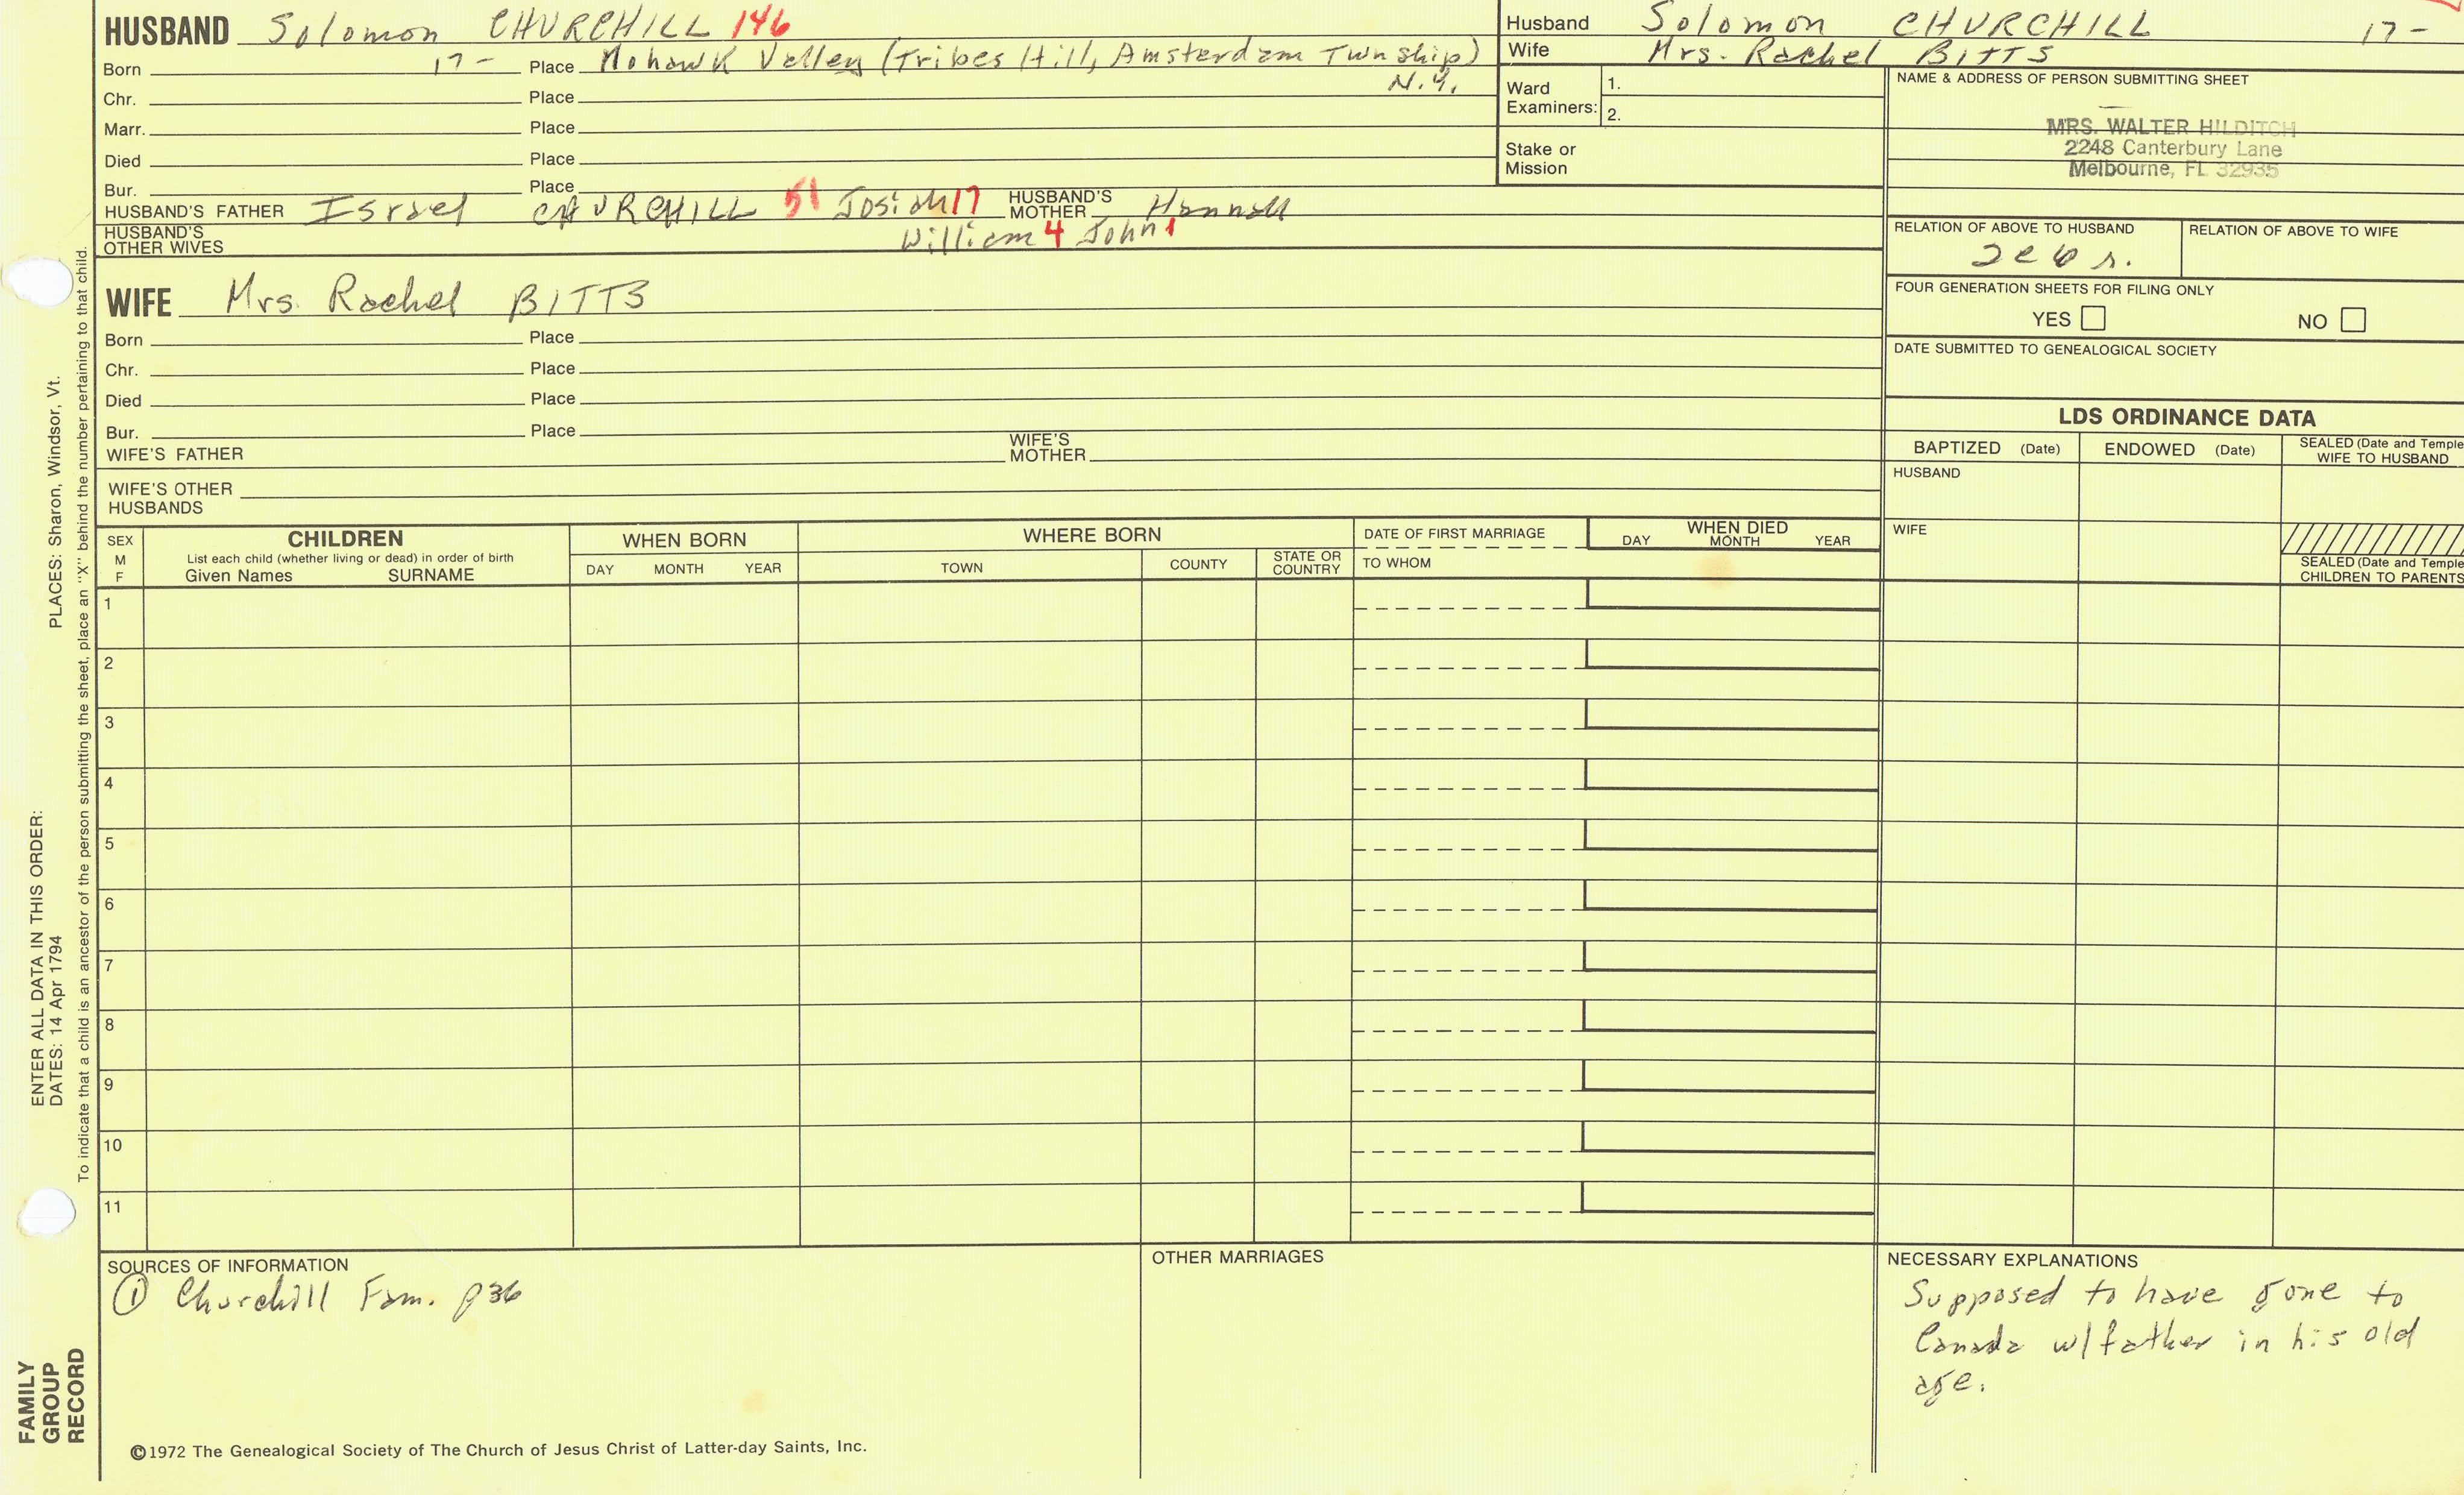 HUSBAND Solomon CHURCHILL 146
Born 17- Place Mohawk Valley (Tribes Hill, Amsterdam Twnship)
N.Y.
Chr. Place
Marr. Place
Died Place
Bur. Place
HUSBAND'S FATHER Israel CHURCHILL 51 Josiah 17 HUSBAND'S MOTHER Hannah
William 4 John 1
HUSBAND'S OTHER WIVES
WIFE Mrs. Rachel BITTS
Born Place
Chr. Place
Died Place
Bur. Place
WIFE'S FATHER WIFE'S MOTHER
WIFE'S OTHER HUSBANDS
Husband Solomon CHURCHILL 17-
Wife Mrs. Rachel BITTS
Ward Examiners: 1.
2.
Stake or Mission
NAME & ADDRESS OF PERSON SUBMITTING SHEET
MRS. WALTER HILDITCH
2248 Canterbury Lane
Melbourne, FL 32935
RELATION OF ABOVE TO HUSBAND RELATION OF ABOVE TO WIFE
FOUR GENERATION SHEETS FOR FILING ONLY
YES NO
DATE SUBMITTED TO GENEALOGICAL SOCIETY
LDS ORDINANCE DATA
BAPTIZED (Date) ENDOWED (Date) SEALED (Date and Temple
WIFE TO HUSBAND
HUSBAND
WIFE
SEALED (Date and Temple
CHILDREN TO PARENTS
SEX
M
F
CHILDREN
List each child (whether living or dead) in order of birth
Given Names SURNAME
WHEN BORN
DAY MONTH YEAR
WHERE BORN
TOWN COUNTY STATE OR COUNTRY
DATE OF FIRST MARRIAGE
TO WHOM
WHEN DIED
DAY MONTH YEAR
1
2
3
4
5
6
7
8
9
10
11
SOURCES OF INFORMATION
① Churchill Fam. p36
OTHER MARRIAGES
NECESSARY EXPLANATIONS
Supposed to have gone to
Canada w/father in his old
age.
©1972 The Genealogical Society of The Church of Jesus Christ of Latter-day Saints, Inc.
FAMILY
GROUP
RECORD
ENTER ALL DATA IN THIS ORDER:
DATES: 14 Apr 1794 PLACES: Sharon, Windsor, Vt.
To indicate that a child is an ancestor of the person submitting the sheet, place an "X" behind the number pertaining to that child.